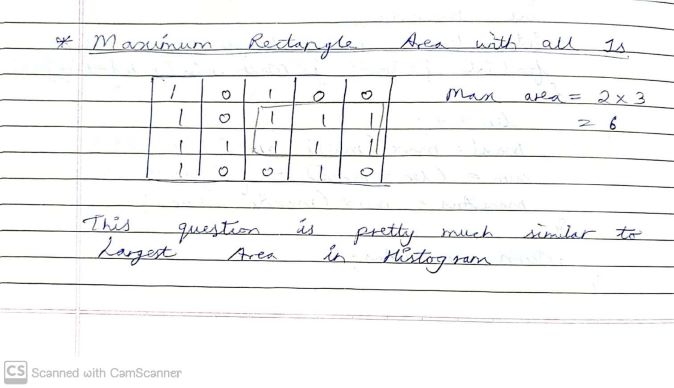 * Maximum Rectangle Area with all 1s
1 0 1 0 0 Max area = 2 x 3
1 0 1 1 1 = 6
1 1 1 1 1
1 0 0 1 0
This question is pretty much similar to
Largest Area in Histogram
CS Scanned with CamScanner